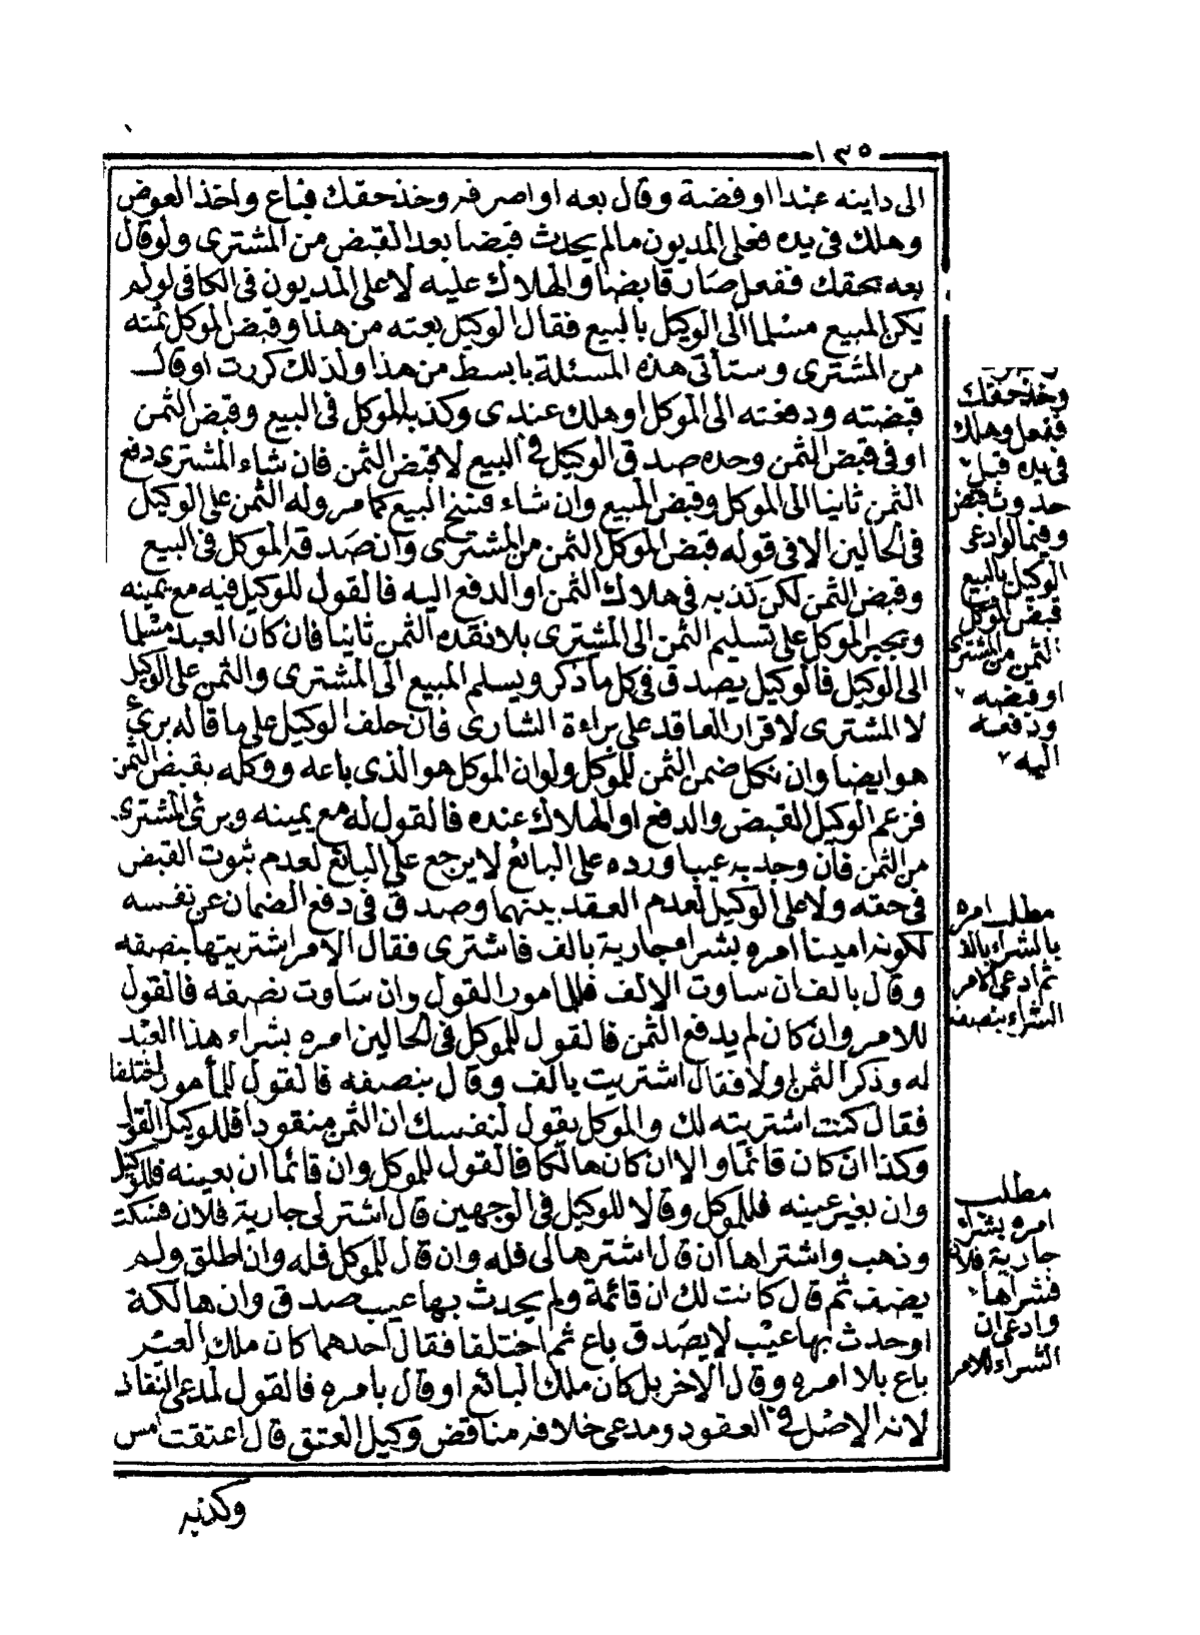 ١٣٥
الى داينه عبدا او فضة وقال بعه او اصرفه وخذ حقك فباع واخذ العوض
وهلك في يده فعلى المديون مالم يحدث قبضا بعد القبض من المشترى ولو قال
بعه بحقك ففعل صار قابضا والهلاك عليه لا على المديون في الكافى لو لم
يكن المبيع مسلما الى الوكيل بالبيع فقال الوكيل بعته من هذا وقبض الموكل ثمنه
من المشترى وستأتى هذه المسئلة بابسط من هذا ولذلك كررت او قال
قبضته ودفعته الى الموكل او هلك عندى وكذبه الموكل في البيع وقبض الثمن
او فى قبض الثمن وحده صدق الوكيل في البيع لا قبض الثمن فان شاء المشترى دفع
الثمن ثانيا الى الموكل وقبض المبيع وان شاء فسخ البيع كما مر وله الثمن على الوكيل
في الحالين الا فى قوله قبض الموكل الثمن من المشترى وان صدقه الموكل في البيع
وقبض الثمن لكن كذبه في هلاك الثمن او الدفع اليه فالقول للوكيل فيه مع يمينه
ويجبر الموكل على تسليم الثمن الى المشترى بلا نقده الثمن ثانيا فان كان العبد مسلما
الى الوكيل فالوكيل يصدق في كل ما ذكر ويسلم المبيع الى المشترى والثمن على الوكيل
لا المشترى لاقرار العاقد على براءة الشارى فان حلف الوكيل على ما قاله برئ
هو ايضا وان نكل ضمن الثمن للموكل ولو ان الموكل هو الذى باعه ووكله بقبض الثمن
فزعم الوكيل القبض والدفع او الهلاك عنده فالقول له مع يمينه وبرئ المشترى
من الثمن فان وجد به عيبا ورده على البائع لا يرجع على البائع لعدم ثبوت القبض
في حقه ولا على الوكيل لعدم العقد بينهما وصدق في دفع الضمان عن نفسه
لكونه امينا امره بشراء جارية بالف فاشترى فقال الامر اشتريتها بنصفه
وقال بالف ان ساوت الالف فللمامور القول وان ساوت نصفه فالقول
للامر وان كان لم يدفع الثمن فالقول للموكل في الحالين امره بشراء هذا العبد
له وذكر الثمن اولا فقال اشتريت بالف وقال بنصفه فالقول للمأمور اختلفا
فقال كنت اشتريته لك والموكل يقول لنفسك ان الثمن منقودا فللوكيل القول
وكذا ان كان قائما والا ان كان هالكا فالقول للموكل وان قائما ان بعينه فللوكيل
وان بغير عينه فللموكل وقالا للوكيل في الوجهين قال اشتر لى جارية فلان فسكت
وذهب واشتراها ان قال اشترها لى فله وان قال للموكل فله وان اطلق ولم
يضف ثم قال كانت لك ان قائمة ولم يحدث بها عيب صدق وان هالكة
او حدث بها عيب لا يصدق باع ثم اختلفا فقال احدهما كان ملك الغير
باع بلا امره وقال الاخر بل كان ملك البائع او قال بامره فالقول لمدعى النفاذ
لانه الاصل في العقود ومدعى خلافه مناقض وكيل العتق قال اعتقت امس
وكذبه
وخذ حقك
ففعل وهلك
في يده قبل
حدوث قبض
وفيما لو ادعى
الوكيل بالبيع
قبض الموكل
الثمن من المشترى
او قبضه
ودفعه
اليه
مطلب امره
بالشراء بالف
ثم ادعى الامر
الشراء بنصفه
مطلب
امره بشراء
جارية فلان
فشراها
وادعى ان
الشراء للامر